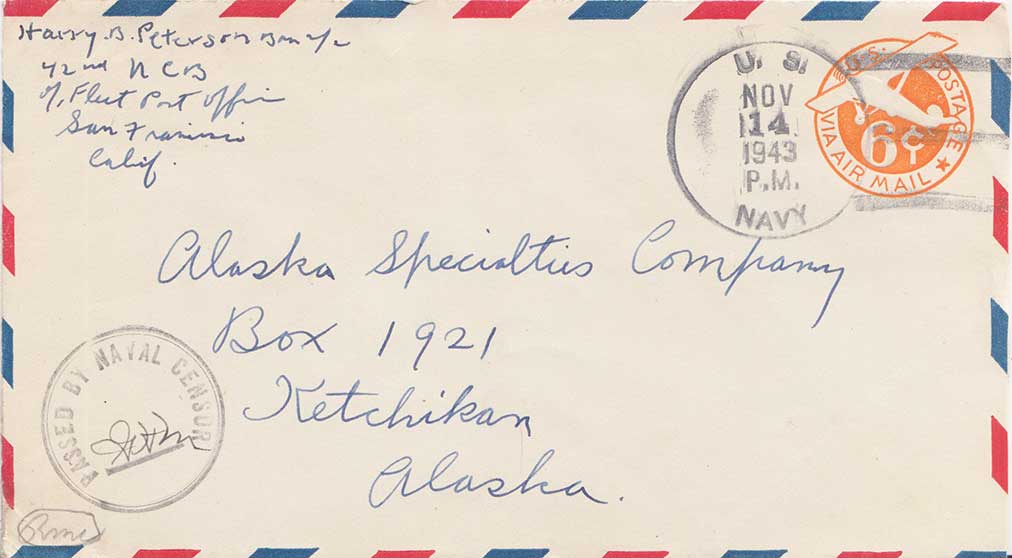 Harry B. Peterson Bm 2/c
42nd N C B
℅ Fleet Post Office
San Francisco
Calif.
U. S.
NOV
14
1943
P.M.
NAVY
U.S. POSTAGE
6¢
VIA AIR MAIL
Alaska Specialties Company
Box 1921
Ketchikan
Alaska.
PASSED BY NAVAL CENSOR